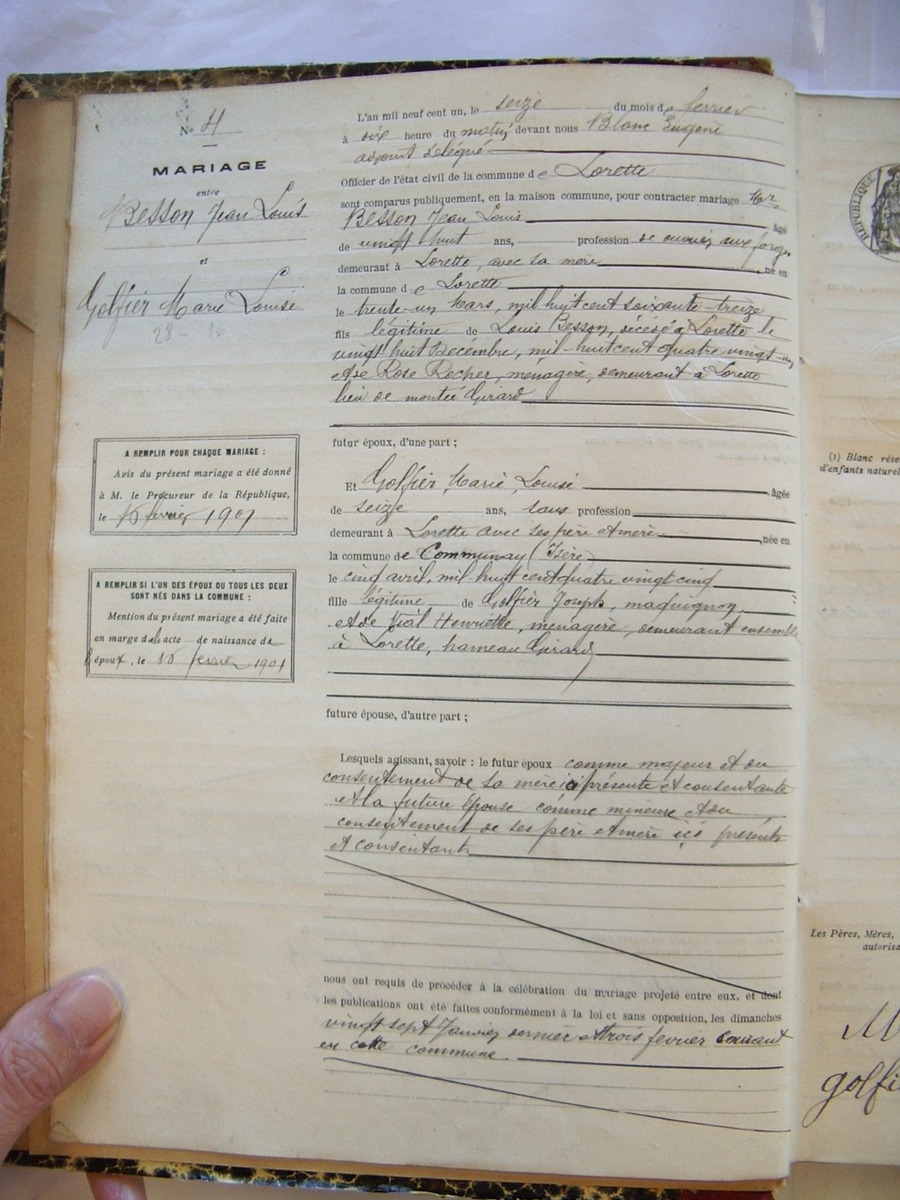 N° 4
MARIAGE
entre
Besson Jean Louis
et
Golfier Marie Louise
28 - 16
A REMPLIR POUR CHAQUE MARIAGE :
Avis du présent mariage a été donné
à M. le Procureur de la République,
le 16 février 1901
A REMPLIR SI L'UN DES ÉPOUX OU TOUS LES DEUX
SONT NÉS DANS LA COMMUNE :
Mention du présent mariage a été faite
en marge de l'acte de naissance de
l'époux, le 16 février 1901
L'an mil neuf cent un, le seize du mois de février
à dix heure du matin devant nous Blanc Eugène
adjoint délégué
Officier de l'état civil de la commune de Lorette
sont comparus publiquement, en la maison commune, pour contracter mariage Mr
Besson Jean Louis âgé
de vingt huit ans, profession de ouvrier aux forges
demeurant à Lorette, avec sa mère né en
la commune de Lorette
le trente-un Mars, mil huit cent soixante-treize
fils légitime de Louis Besson, décédé à Lorette le
vingt huit Décembre, mil-huit cent quatre vingt-un
et de Rose Rocher, ménagère, demeurant à Lorette
lieu de montée Girard
futur époux, d'une part ;
Et Golfier, Marie, Louise Agée
de seize ans, sans profession
demeurant à Lorette avec ses père et mère ,née en
la commune de Communay (Isère)
le cinq avril, mil-huit cent quatre vingt cinq
fille légitime de Golfier Joseph, maquignon
et de Vial Henriette, ménagère, demeurant ensemble
à Lorette, hameau Girard
future épouse, d'autre part ;
Lesquels agissant, savoir : le futur époux comme majeur et du
consentement de sa mère ici présente et consentante
et la future épouse comme mineure et du
consentement de ses père et mère ici présents
et consentants
nous ont requis de procéder à la célébration du mariage projeté entre eux, et dont
les publications ont été faites conformément à la loi et sans opposition, les dimanches
vingt sept Janvier dernier et trois février courant
en cette commune.
RÉPUBLIQUE
(1) Blanc rése
d'enfants naturel
Les Pères, Mères,
autorisa
M
golfi